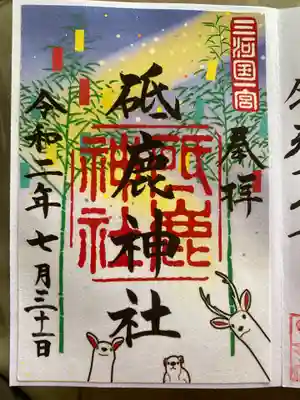 三河国一宮
奉拝
砥鹿神社
砥鹿神社
令和二年七月三十一日